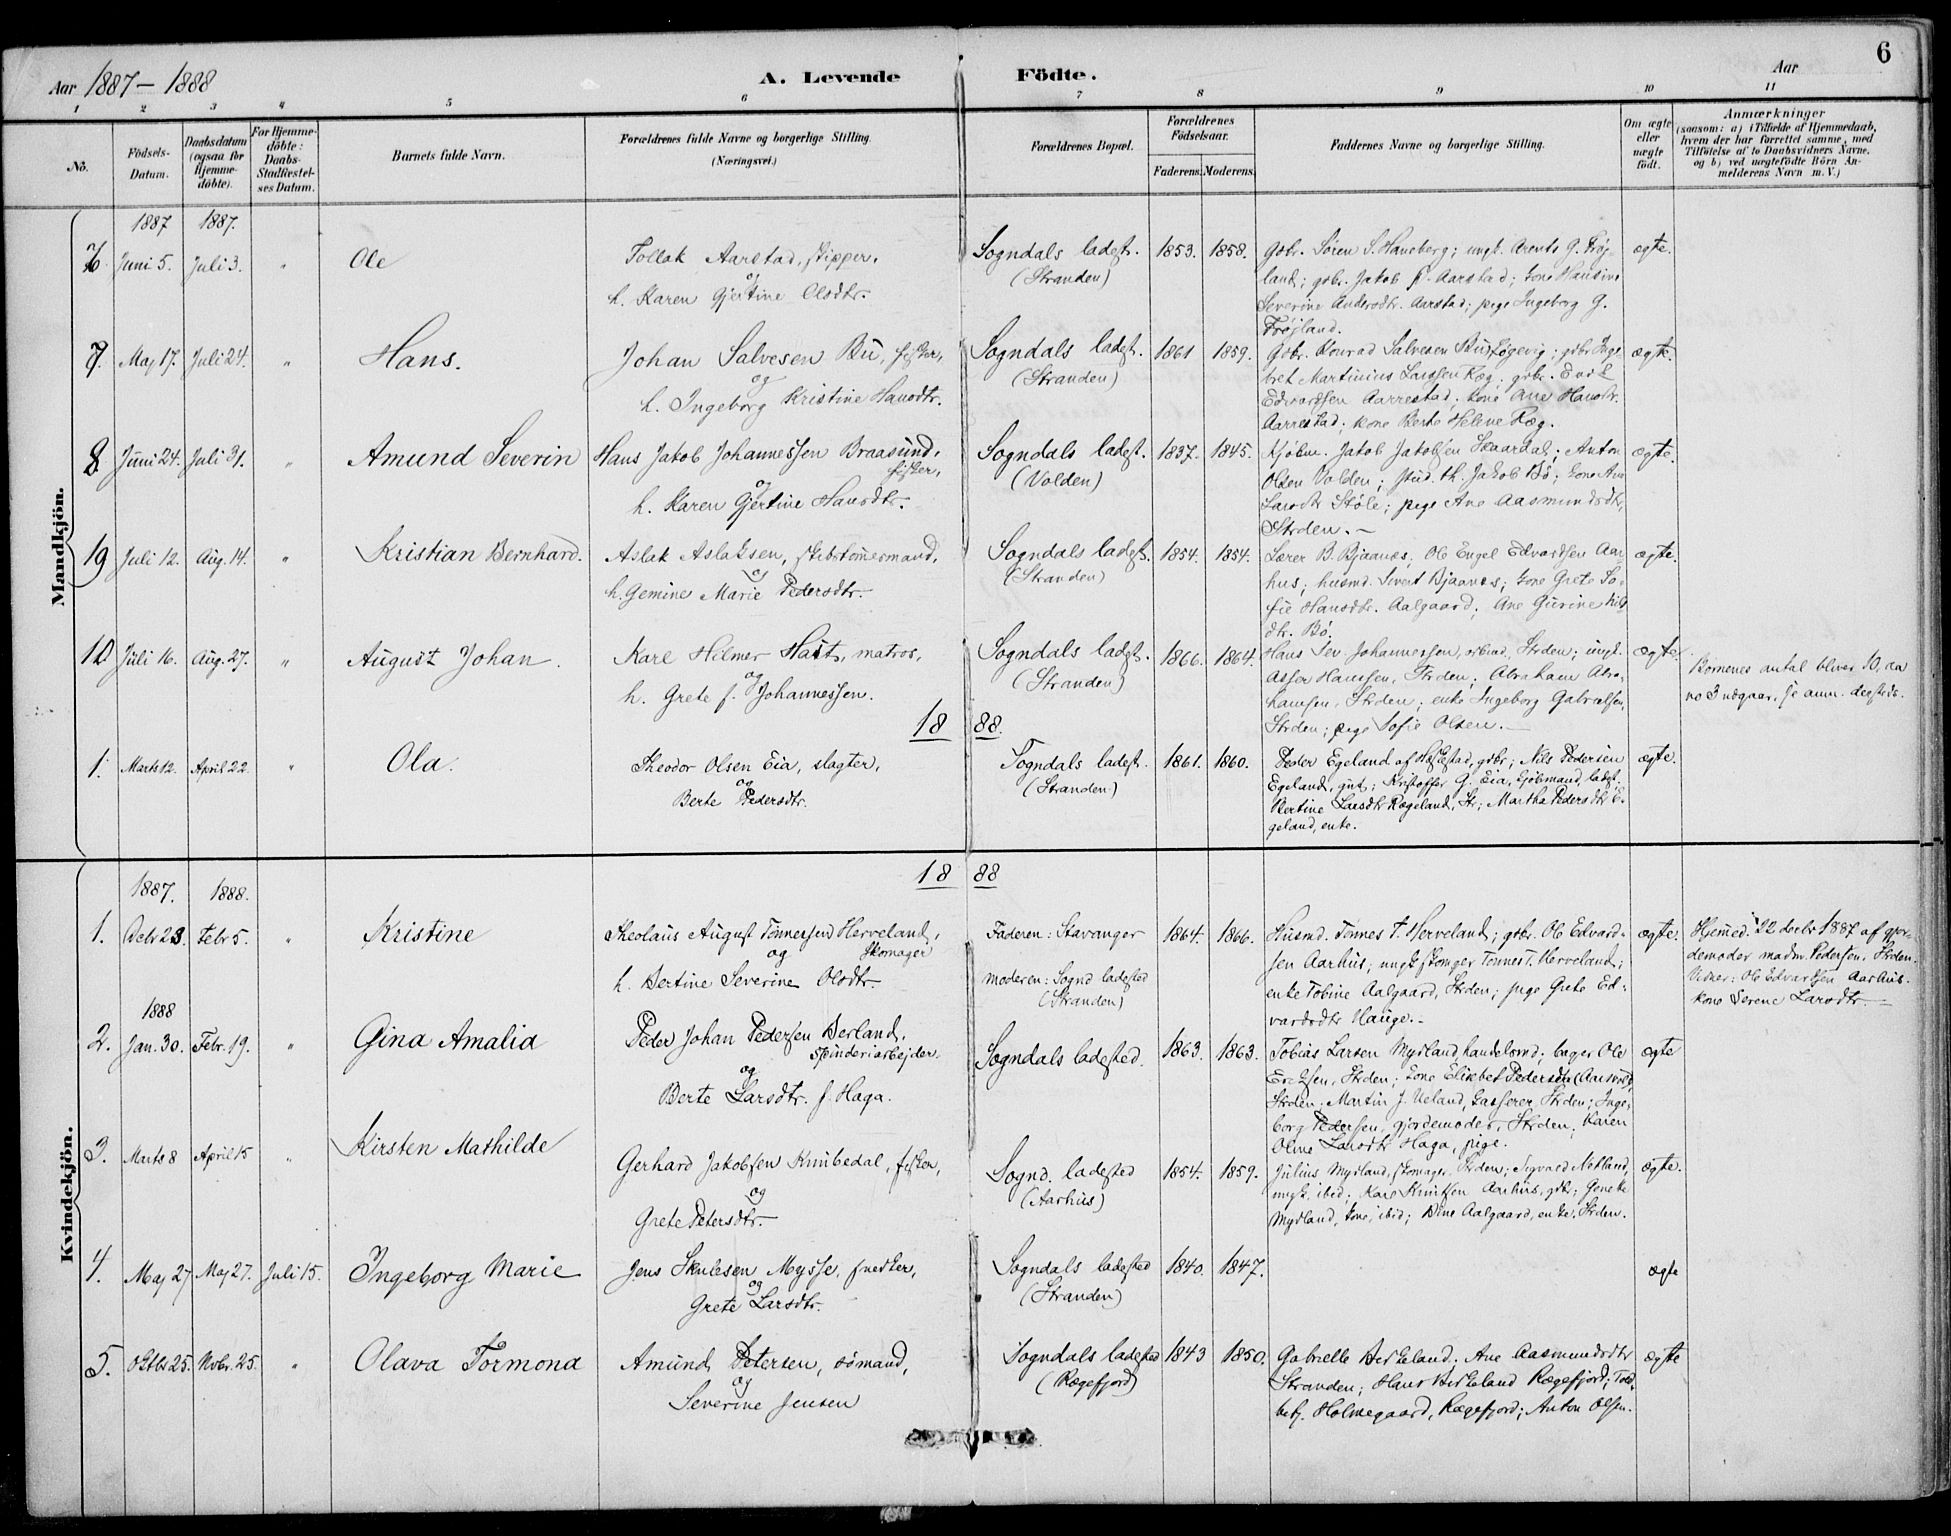 6
Aar 1887 - 1888
A. Levende Födte.
Aar
1 2 3 4 5 6 7 8 9 10 11
No.
Födsels-Datum.
Daabsdatum (ogsaa for Hjemme-döbte).
For Hjemme-döbte: Daabs-Stadfæstel-ses Datum.
Barnets fulde Navn.
Forældrenes fulde Navne og borgerlige Stilling.
(Næringsvei.)
Forældrenes Bopæl.
Forældrenes Födselsaar.
Faderens. Moderens.
Faddernes Navne og borgerlige Stilling.
Om ægte eller uægte født.
Anmærkninger
(saasom: a) i Tilfælde af Hjemmedaab,
hvem der har forrettet samme, med
Tilföielse af to Daabsvidners Navne,
og b) ved uægtefödte Börn An-
melderens Navn m. V.)
Mandkjön.
1887 1887.
6 Juni 5. Juli 3. " Ole
Tollak Aarstad, skipper,
og
h. Karen Gjertine Olsdtr.
Sogndals ladest.
(Stranden)
1853. 1858.
Gbr. Sören S. Haneberg; ungk. Arents G. Fröj-
land; gbr. Jakob P. Aarstad; kone Hansine
Severine Andersdtr. Aarstad; pige Ingeborg G.
Fröjland.
ægte.
7. Maj 17. Juli 24. " Hans.
Johan Salvesen Bu, fisker,
og
h. Ingeborg Kristine Hansdtr.
Sogndals ladest.
(Stranden)
1861 1859.
Gbr. Konrad Salvesen Bu, Fogevig; gbr. Inge-
bret Martinius Larssen Ræg; gbr. Emil
Edvardsen Aarrestad; kone Ane Hansdtr.
Aarrestad; kone Berte Helene Ræg.
ægte.
8 Juni 24. Juli 31. " Amund Severin
Hans Jakob Johannessen Braasund,
fisker,
og
h. Karen Gjertine Hansdtr.
Sogndals ladest.
(Volden)
1837. 1845.
Kjöbm. Jakob Jakobsen Skaardal; Anton
Olsen Valden; stud. th. Jakob Bö; kone Ane
Larsdtr Stöle; pige Ane Aasmundsdtr,
Strden. —
ægte.
9 Juli 12. Aug. 14. " Kristian Bernhard.
Aslak Aslaksen, skibstömmermand,
og
h. Gemine Marie Pedersdtr.
Sogndals ladest.
(Stranden)
1854. 1854.
Lærer B. Bjaanes; Ole Engel Edvardsen Aar-
hus; husmd. Sivert Bjaanes; kone Grete So-
fie Hansdtr. Aalgaard; Ane Gurine Nils
dtr. Bö.
ægte.
10 Juli 16. Aug. 27. " August Johan.
Karl Hilmer Hast, matros,
og
h. Grete f. Johannessen.
Sogndals ladest.
(Stranden)
1866. 1864.
Hans Sev. Johannessen, arbmd, Strden; ungk.
Asser Hanssen, Strden; Abraham Abra-
hamsen, Strden; enke Ingeborg Gabrielsen,
Strden; pige Sofie Olsen. —
ægte.
Börnenes antal bliver 10, da
no 3 udgaar, se anm. desteds.
18 88.
1. Marts 12. April 22 " Ola.
Theodor Olsen Eia, slagter,
og
Berte Pedersdtr.
Sogndals ladest.
(Stranden)
1861. 1860.
Peder Egeland af Hæstad, gbr; Nils Pedersen
Egeland, gut; Kristoffer G. Eia, Sjömand, ladst.
Bertine Larsdtr Rægeland, Str; Martha Pedersdtr E-
geland, enke.
ægte.
Kvindekjön.
18 88
1887. 1888.
1. Decbr 23. Febr 5. " Kristine
Theolaus August Tönnersen Herveland,
og Skomager
h. Bertine Severine Olsdtr.
Faderen: Stavanger
Moderen: Sognd ladested
(Stranden)
1864. 1866.
Husmd. Tönnes T. Herveland; gbr. Ole Edvard-
sen Aarhus; ungk skomger Tönnes T. Herveland;
enke Tobine Aalgaard, Strden; pige Grete Ed-
vardsdtr Hauge. —
ægte.
Hjemmed. 22 decbr 1887 af gjor-
demoder madm. Pedersen, Strden.
Vidner: Ole Edvardsen Aarhus.
kone Serene Larsdtr. —
1888
2. Jan. 30. Febr. 19. " Gina Amalia
Peder Johan Pedersen Berland,
Spinderiarbejder.
og
Berte Larsdtr. f. Haga.
Sogndals ladested.
1863. 1863.
Tobias Larsen Mydland, handelsmd; bager Ole
Eriksen, Strden; kone Elisabet Pedersdtr (Aarsvold)
Strden. Martin J. Ueland, Kasserer, Strden; Inge-
borg Pedersen, gjordemoder, Strden; Karen
Oline Larsdtr Haga, pige.
ægte
3. Marts 8 April 15 " Kirsten Mathilde
Gerhard Jakobsen Knubedal, fisker,
og
Grete Petersdtr.
Sognd. ladested
(Aarhus)
1854. 1859.
Julius Mydland, skomager, Strden; Sigvard Netland,
ungk. ibid; Karl Knutsen Aarhus, gbr; Geneke
Mydland, kone, ibid; Dine Aalgaard, enke, Strden.
ægte.
4. Maj 27 Maj 27. Juli 15. Ingeborg Marie
Jens Skulesen Mysse, snedker,
og
Grete Larsdtr.
Sogndals ladested
(Stranden)
1840. 1847.
ægte
5. Oktbr 25. Novbr. 25. " Olava Tormona
Amund Petersen, sömand,
og
Severine Jensen
Sogndals ladested
(Rægefjord)
1843 1850.
Gabrielle Birkeland; Ane Aasmundsdtr
Stranden; Hans Birkeland Rægefjord; Told-
betj. Holmegaard, Rægefjord; Anton Olsen.
ægte